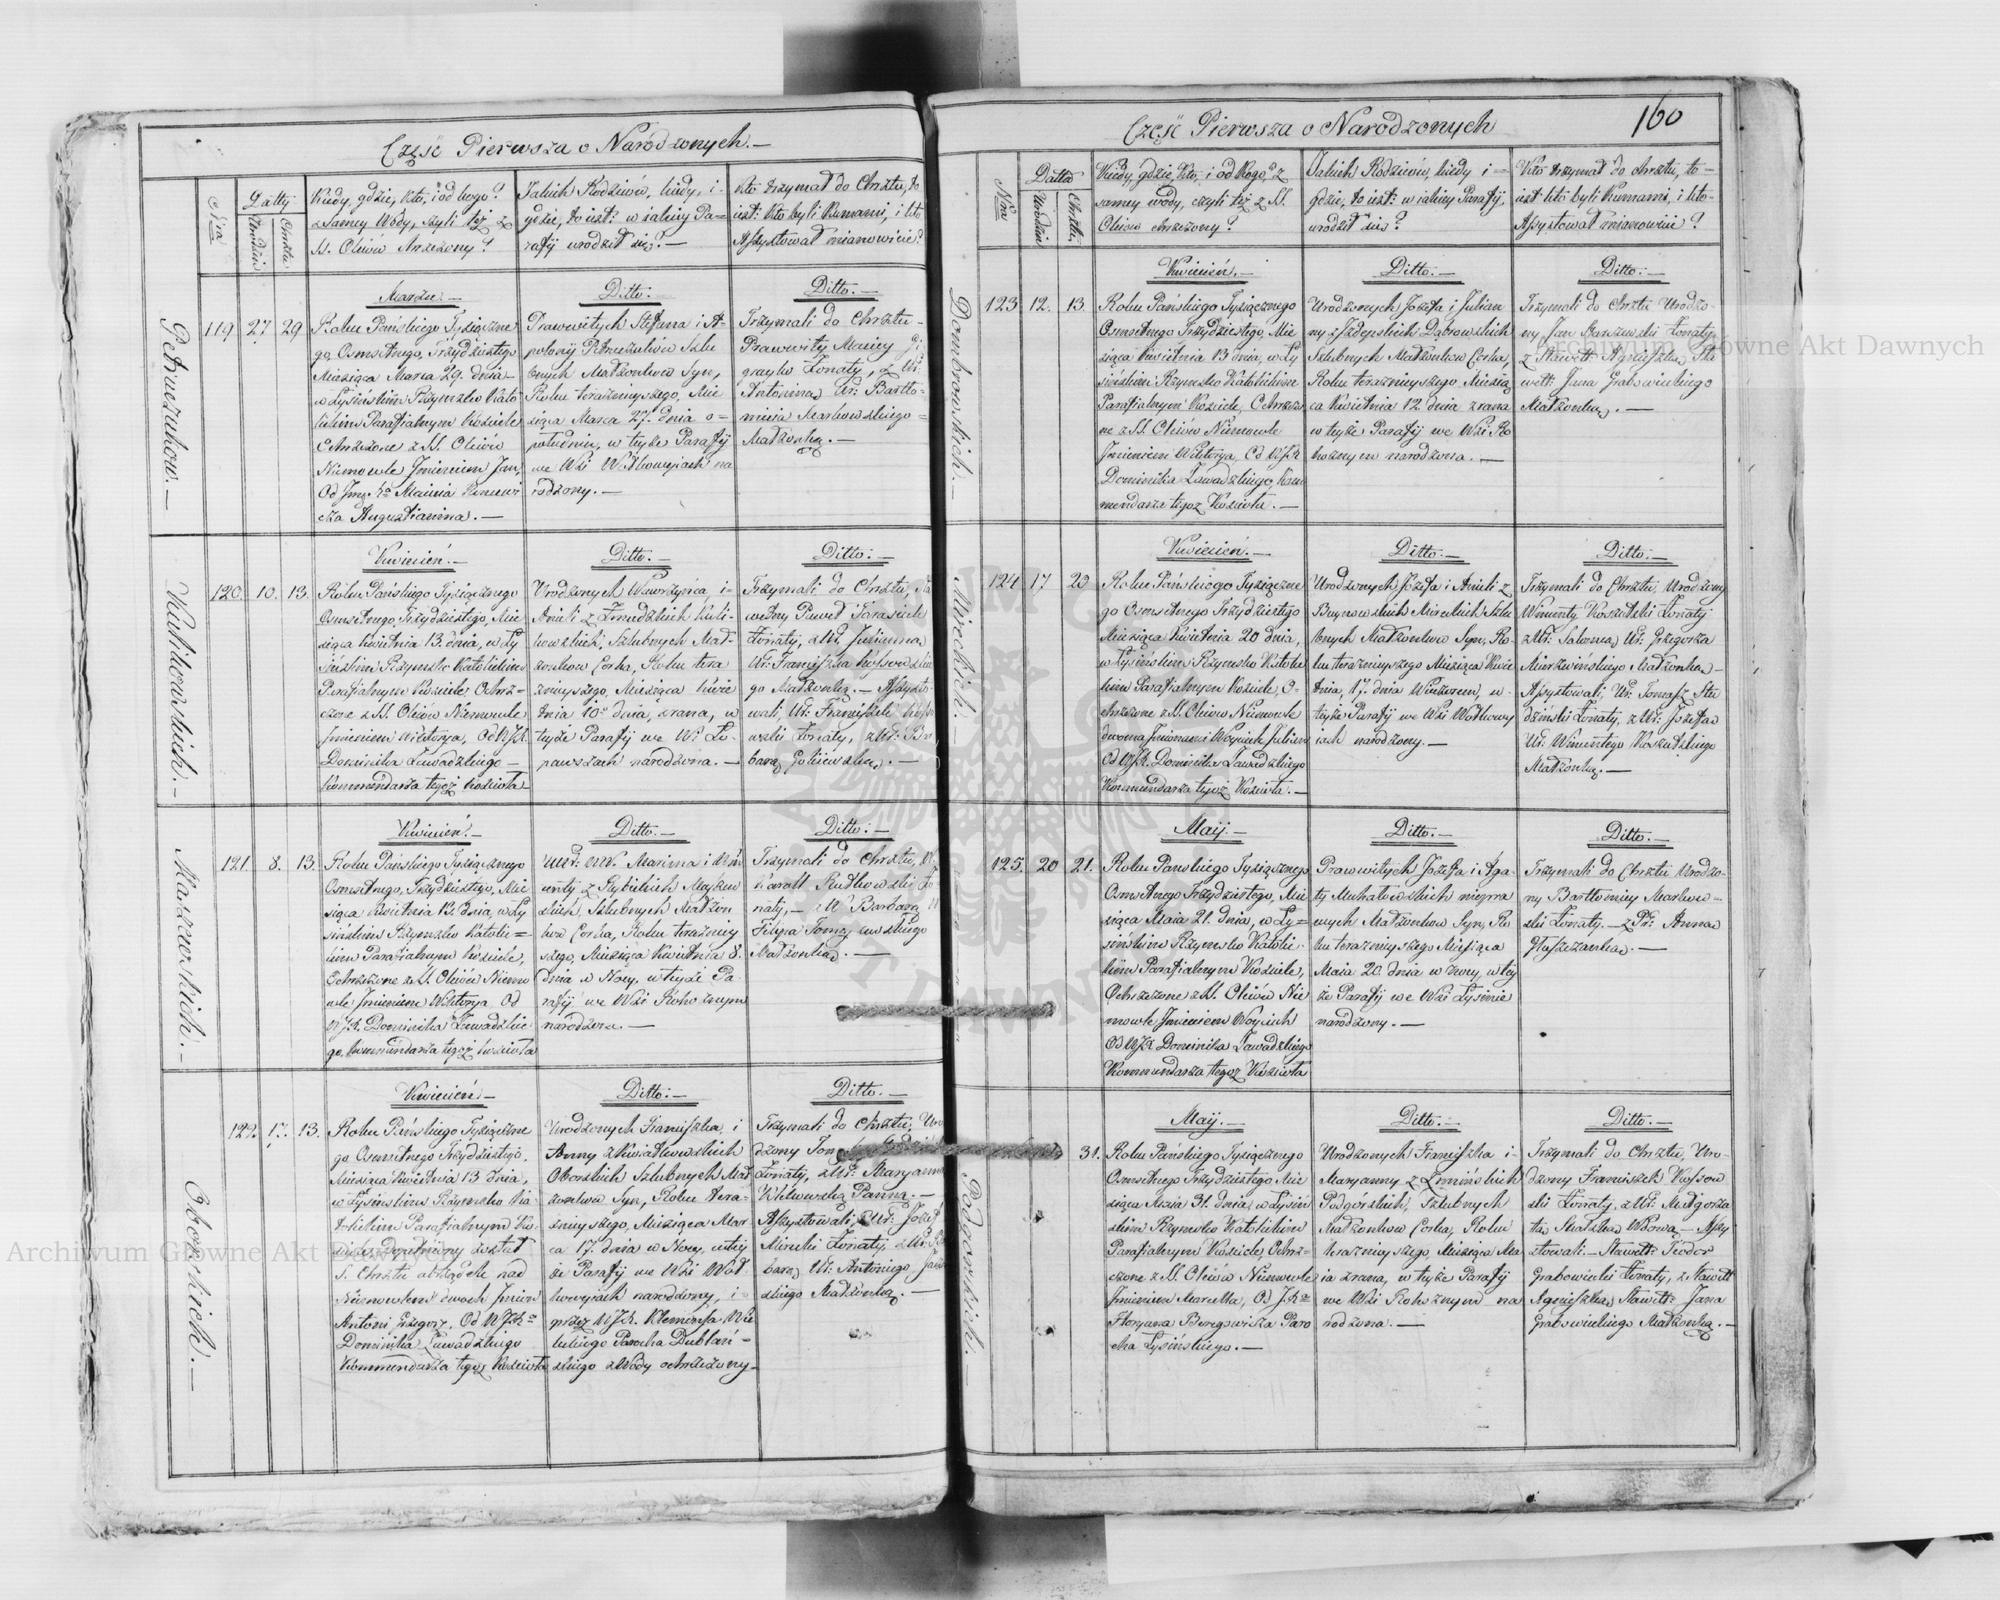 Część Pierwsza o Naródzonych.—
Nra
Datty
Urodzin
Chrztu
Kiedy, gdzie, Kto, i od kogo?
z Samey Wody, czyli też z
SS. Oleiów Chrzczony?
Jakich Rodziców, kiedy, i-
gdzie, to iest: w iakiey Pa=
rafij urodził się?—
Kto trzymał do Chrztu, to
iest: Kto byli Kumami, i kto
Assystował mianowicie?
Petruczukow.—
119
27
29
Marzec.—
Roku Pańskiego Tysiączne
go Osmsetnego, Trzydziestego
Miesiąca Marca 29. dnia—
w Łysińskim Rzymsko Kato
lickim Parafialnym Kościele
Ochrzczone z SS. Oleiów
Niemowle Jmieniem Jan,
Augustianina.—
Ditto.
Prawowitych Stefana i A-
polonij Petruczuków Szlu
bnych Małżonków Syn,
Roku teraznieyszego, Mie
siąca Marca 27. dnia o-
południu, w teyże Parafij
we Wsi Witkowcjach na
rodzony.—
Ditto.—
Trzymali do Chrztu-
Prawowity Maciey
Żonaty, z Ur:
Antoniną Ur: Bartło-
mieia Markowskiego=
Małżonką.—
Kulikowskich.—
120.
10.
13.
Kwiecień.—
Roku Pańskiego Tysiącznego
Osmsetnego, Trzydziestego, Mie
siąca Kwietnia 13. dnia, w Ły
sińskim Rzymsko Katolickim
Parafialnym Kościele Ochrz=
czone z SS. Oleiów Niemowle
Jmieniem Wiktorya, Od WJX.
Dominika Zawadzkiego—
Kommendarza tegoż Kościoła
Ditto.—
Urodzonych Wawrzyńca, i-
Anieli z Żmudzkich Kuli-
kowskich, Szlubnych Mał-
żonkow Corka, Roku tera
znieyszego, Miesiąca Kwie
tnia 10. dnia, zrana, w
teyże Parafij we W. Ło-
pawszach narodzona.—
Ditto.—
Trzymali do Chrztu,
Paweł Tarasiuk
Żonaty, z Ur. Julianną
Ur: Franciszka
go Małżonką.— Assysto-
wali, Ur: Franciszek
Żonaty, z Ur: Bar
barą
121.
8.
13.
Kwiecień.—
Roku Pańskiego Tysiącznego
Osmsetnego, Trzydziestego, Mie
siąca Kwietnia 13. dnia, w Ły
sińskim Rzymsko Katolic=
kim Parafialnym Kościele,
Ochrzczone z SS. Oleiów Niemo
wle Jmieniem Wiktorya Od
WJX. Dominika Zawadzkie
go, Kommendarza tegoż Kościoła
Ditto.—
Szlubnych Małżon
ków Corka, Roku teraźniey
szego, Miesiąca Kwietnia 8.
dnia w Nocy, w teyże Pa
rafij we Wsi Rohoznym
narodzona.—
Ditto.—
Trzymali do Chrztu,
Karoll Rutkowski Żo
naty,— z Ur Barbarą
Filipa
Małżonką.—
Oborskich.—
122.
17.
13.
Kwiecień—
Roku Pańskiego Tysiączne
go Osmsetnego Trzydziestego,
Miesiąca Kwietnia 13 dnia,
w Łysińskim Rzymsko Ka-
tolickim Parafialnym Ko-
ściele, dopełniony został
S. Chrztu obrządek nad
Niemowlem dwoch Jmion
Antoni Grzegorz, Od WJX
Dominika Zawadzkiego
Kommendarza tegoż Kościoła
Ditto:—
Urodzonych Franciszka, i
Anny z Kwiatkowskich
Oborskich Szlubnych Mał
żonków Syn, Roku tera=
znieyszego, Miesiąca Mar-
ca 17. dnia w Nocy, w tey
że Parafij we Wsi Wit-
kowcjach narodzony, i-
przez WJX. Klemensa
Parocha Dubłań-
skiego z Wody ochrzczony—
Ditto.—
Trzymali do Chrztu, Uro
dzony
Żonaty, z Ur: Maryanną
Panną.—
Assystowali, Ur: Józef
Mirecki Żonaty, z Ur: Bar
barą Ur: Antoniego
Małżonką.—
Część Pierwsza o Narodzonych
160
Nra
Datta
Urodzin
Chrztu
Kiedy, gdzie, Kto, i od Kogo? z
samey wody, czyli też z SS.
Oleiow chrzczony?
Jakich Rodziców, kiedy i=
gdzie, to iest: w iakiey Parafij,
urodził się?
Kto trzymał do chrztu, to-
iest kto byli Kumami, i kto-
Assystował mianowicie?
Dombrowskich.—
123
12.
13
Kwiecień.—
Roku Pańskiego Tysiącznego
Osmsetnego Trzydziestego, Mie
siąca Kwietnia 13 dnia, w Ły
sińskim Rzymsko Katolickim
Parafialnym Kościele, Ochrzczo
ne z SS. Oleiow Niemowle
Jmieniem Wiktorya, Od WJX
Dominika Zawadzkiego, Kom
mendarza tegoż Kościoła.—
Ditto.—
Urodzonych Jozefa i Julian
ny Dąbrowskich
Szlubnych Małżonkow Corka,
Roku teraznieyszego Miesią
ca Kwietnia 12. dnia zrana
w teyże Parafij we Wsi Ro
hoznym narodzona.—
Ditto.—
Trzymali do Chrztu Urodzo-
ny Jan Staszewski Żonaty,
z Sławett: Agnieszką Sła
wett: Jana Grabowieckiego
Małżonką.—
Mireckich.—
124
17
20
Kwiecień.—
Roku Pańskiego Tysiączne
go Osmsetnego Trzydziestego
Miesiąca Kwietnia 20 dnia,
w Łysińskim Rzymsko Kato
lickim Parafialnym Kościele, O-
chrzczone z SS. Oleiów Niemowle
dwoma Jmionami Woyciech Julian
Od WJX. Dominika Zawadzkiego
Kommendarza tegoż Kościoła.—
Ditto.—
Urodzonych Józefa i Anieli z
Mireckich Szlu
bnych Małżonków Syn, Ro-
ku teraznieyszego Miesiąca Kwie
tnia, 17. dnia Wieczorem, w-
teyże Parafij we Wsi Witkowcy
iach narodzony.—
Ditto:—
Trzymali do Chrztu, Urodzony
Wincenty Koszutski Żonaty
z Ur: Salomeą Ur: Grzegorza
Małżonką—
Assystowali, Ur: Tomasz Stu
dziński Żonaty, z Ur: Józefą
Ur: Wincentego Koszutskiego
Małżonką.—
125.
20
21.
Maij.—
Roku Pańskiego Tysiącznego
Osmsetnego Trzydziestego, Mie
siąca Maia 21. dnia, w Ły=
sińskim Rzymsko Katolic-
kim Parafialnym Kościele,
Ochrzczone z SS. Oleiów Nie
mowle Jmieniem Woyciech
Od WJX Dominika Zawadzkiego
Kommendarza tegoż Kościoła
Ditto.—
Prawowitych Józefa i Aga
ty
wnych Małżonkow Syn, Ro
ku teraznieyszego Miesiąca
Maia 20. dnia w nocy, w tey
że Parafij we Wsi Łysinie
narodzony.—
Ditto.—
Trzymali do Chrztu Urodzo-
ny Bartłomiey Markow=
ski Żonaty.— z Pr: Anną
Podgorskich.—
31.
Maij.—
Roku Pańskiego Tysiącznego
Osmsetnego Trzydziestego, Mie
siąca Maia 31. dnia, w Łysiń
skim Rzymsko Katolickim
Parafialnym Kościele, Ochrz=
czone z SS. Oleiów Niemowle
Jmieniem Marcella, Od JX
Floryana Paro
cha Łysińskiego.—
Ditto.—
Urodzonych Franciszka i-
Maryanny z Zmińskich
Podgórskich, Szlubnych
Małżonkow Corka, Roku
teraznieyszego Miesiąca Ma
ia zrana, w teyże Parafij
we Wsi Rohoznym na
rodzona.—
Ditto.—
Trzymali do Chrztu, Uro-
dzony Franciszek
ski Żonaty, z Ur: Małgorza
tą Wdową.— Assy
stowali.— Sławett: Teodor
Grabowiecki Żonaty, z Sławett
Agnieszką Sławett: Jana
Grabowieckiego Małżonką.—
Archiwum Główne Akt Dawnych
Archiwum Główne Akt Dawnych